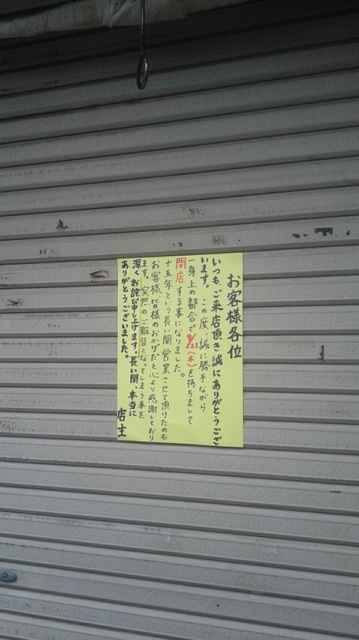 お客様各位
いつも、ご来店頂き誠にありがとうござ
います。この度、誠に勝手ながら
一身上の都合で(木)を持ちまして
閉店する事になりました。
十五年という長い間営業させて頂けたのも
お客様皆様のおかげだと心より感謝しており
ます。突然のご報告となってしまう事を
深くお詫び申し上げます。長い間、本当に
ありがとうございました。
店主